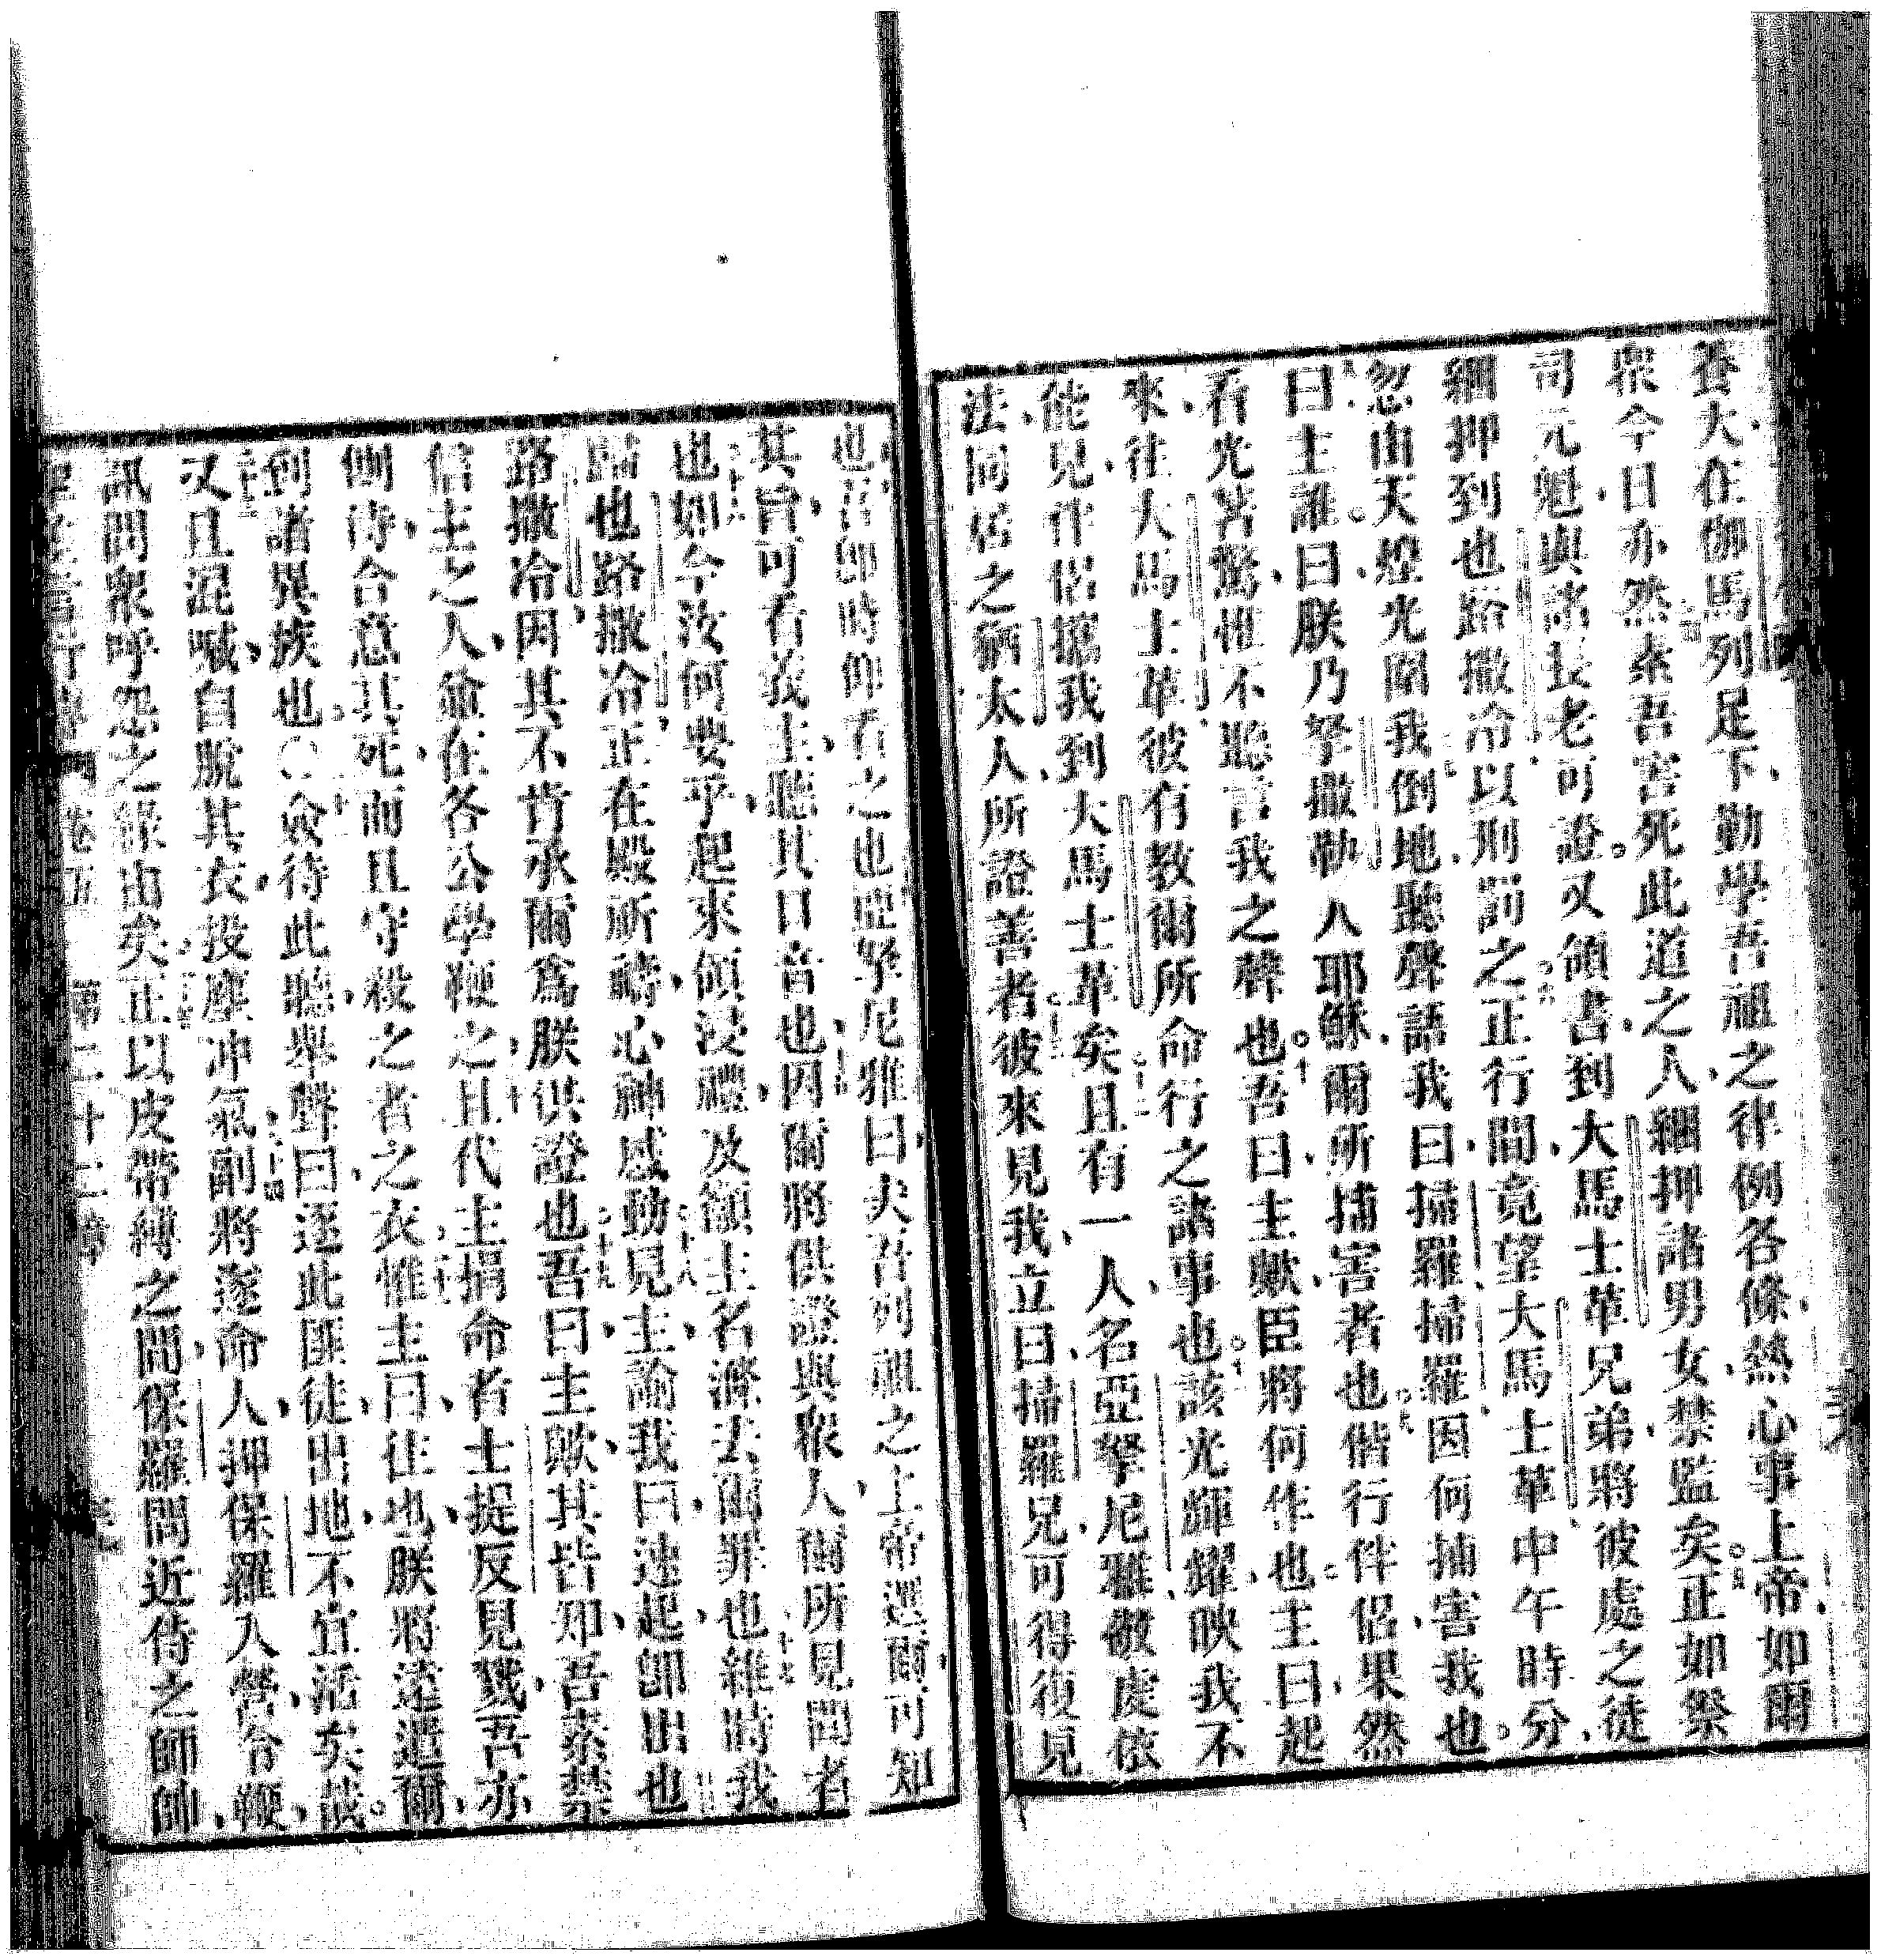 養大在伽馬列足下、勤學吾祖之律例各條、熱心事上帝、如爾
眾今日亦然、素吾害死此道之人、綑押諸男女、禁監矣。正如祭
司元魁、與諸長老可證。又領書、到大馬士革兄弟、將彼處之徒
綑押到也路撒冷、以刑罰之。正行間、竟望大馬士革、中午時分、
忽由天煌光閤我、倒地、聽聲語我曰、掃羅掃羅、因何捕害我也。
曰、主誰。曰、朕乃拏撒勒人耶穌、爾所捕害者也。偕行伴侶、果然
看光著驚、惟不聽言我之聲也。吾曰、主歟、臣將何作也、主曰、起
來、往大馬士革、彼有教爾所命行之諸事也。該光輝耀、映我不
能見、伴侶攥我到大馬士革矣。且有一人、名亞拏尼雅、敬虔依
法、同居之猶太人、所證善者。彼來見我、立曰、掃羅兄、可得復見
也、吾即時仰看之也、亞拏尼雅曰、夫吾列祖之上帝選爾、可知
其旨、可看義主、聽其口音也、因爾將供證與眾人、爾所見聞者
也、如今汝何要乎、起來領浸禮、及籲主名、滌去爾罪也、維時我
歸也路撒冷、正在殿祈禱、心神感動、見主、諭我曰、速起、即出也
路撒冷、因其不肯承爾爲朕供證也、吾曰、主歟、其皆知吾素禁
信主之人、並在各公學鞭之、且代主捐命者士提反見戮、吾亦
側侍、合意其死、而且守殺之者之衣、惟主曰、往也、朕將遠遣爾、
到諸異族也○僉待此聽、舉聲曰、逐此匪徒、出地、不宜活矣哉。
又且混喊、自脫其衣、投塵冲氣、副將遂命人、押保羅入營、令鞭、
訊問眾呼怨之緣由矣、正以皮帶縛之間、保羅問近侍之師帥、
行 卷五 第二十二章